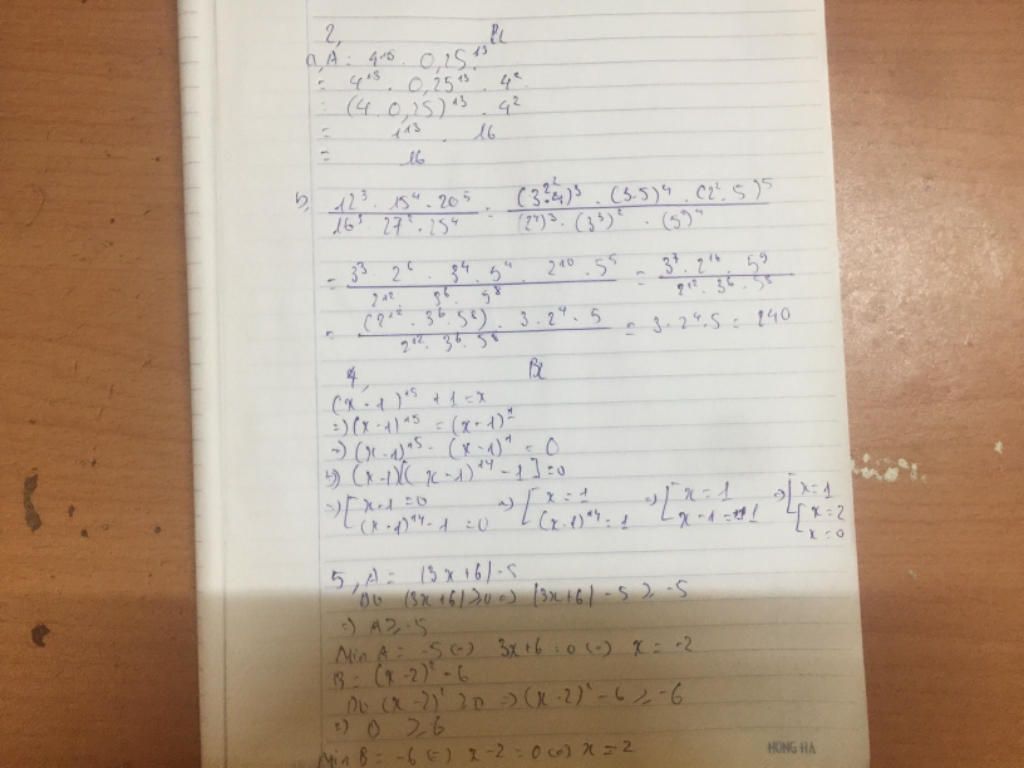 2, Bl
a, A = 4^15 . 0,25^13.
= 4^13 . 0,25^13 . 4^2
= (4 . 0,25)^13 . 4^2
= 1^13 . 16
= 16
b, (12^3 . 15^4 . 20^5)/(16^3 . 27^2 . 25^4) = ((3.2^2)^3 . (3.5)^4 . (2^2 . 5)^5)/((2^4)^3 . (3^3)^2 . (5^2)^4)
= (3^3 . 2^6 . 3^4 . 5^4 . 2^10 . 5^5)/(2^12 . 3^6 . 5^8) = (3^7 . 2^16 . 5^9)/(2^12 . 3^6 . 5^8)
= ((2^12 . 3^6 . 5^8) . 3 . 2^4 . 5)/(2^12 . 3^6 . 5^8) = 3 . 2^4 . 5 = 240
4, Bl
(x - 1)^15 + 1 = x
=> (x - 1)^15 = (x - 1)^1
=> (x - 1)^15 - (x - 1)^1 = 0
=> (x - 1)[(x - 1)^14 - 1] = 0
=> [x - 1 = 0 => [x = 1 => [x = 1 => [x = 1
(x - 1)^14 - 1 = 0 (x - 1)^14 = 1 x - 1 = ±1 [x = 2
x = 0
5, A = |3x + 6| - 5
Do |3x + 6| ≥ 0 => |3x + 6| - 5 ≥ -5
=> A ≥ -5
Min A = -5 (=) 3x + 6 = 0 (=) x = -2
B = (x - 2)^2 - 6
Do (x - 2)^2 ≥ 0 => (x - 2)^2 - 6 ≥ -6
=> ≥ 6
Min B = -6 (=) x - 2 = 0 (=) x = 2
HONG HA